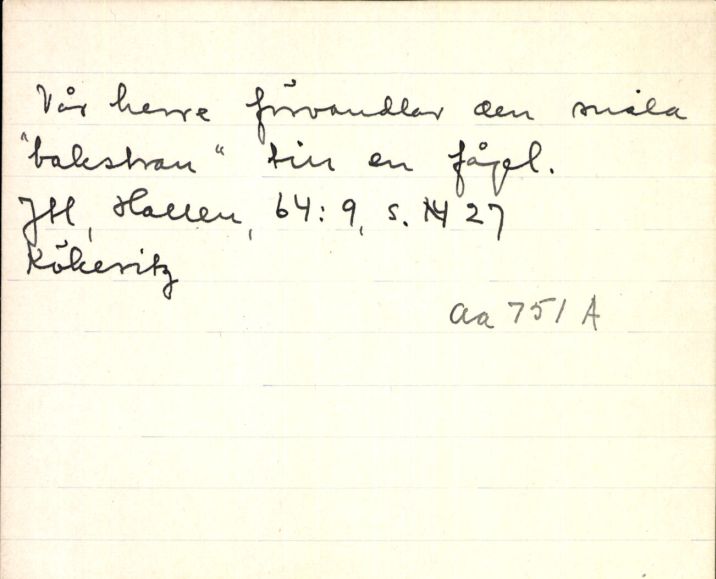 Vår herre förvandlar den snåla
"bakstran" till en fågel.
Jtl, Hallen, 64:9, s. 27
Kökeritz
Aa 751 A